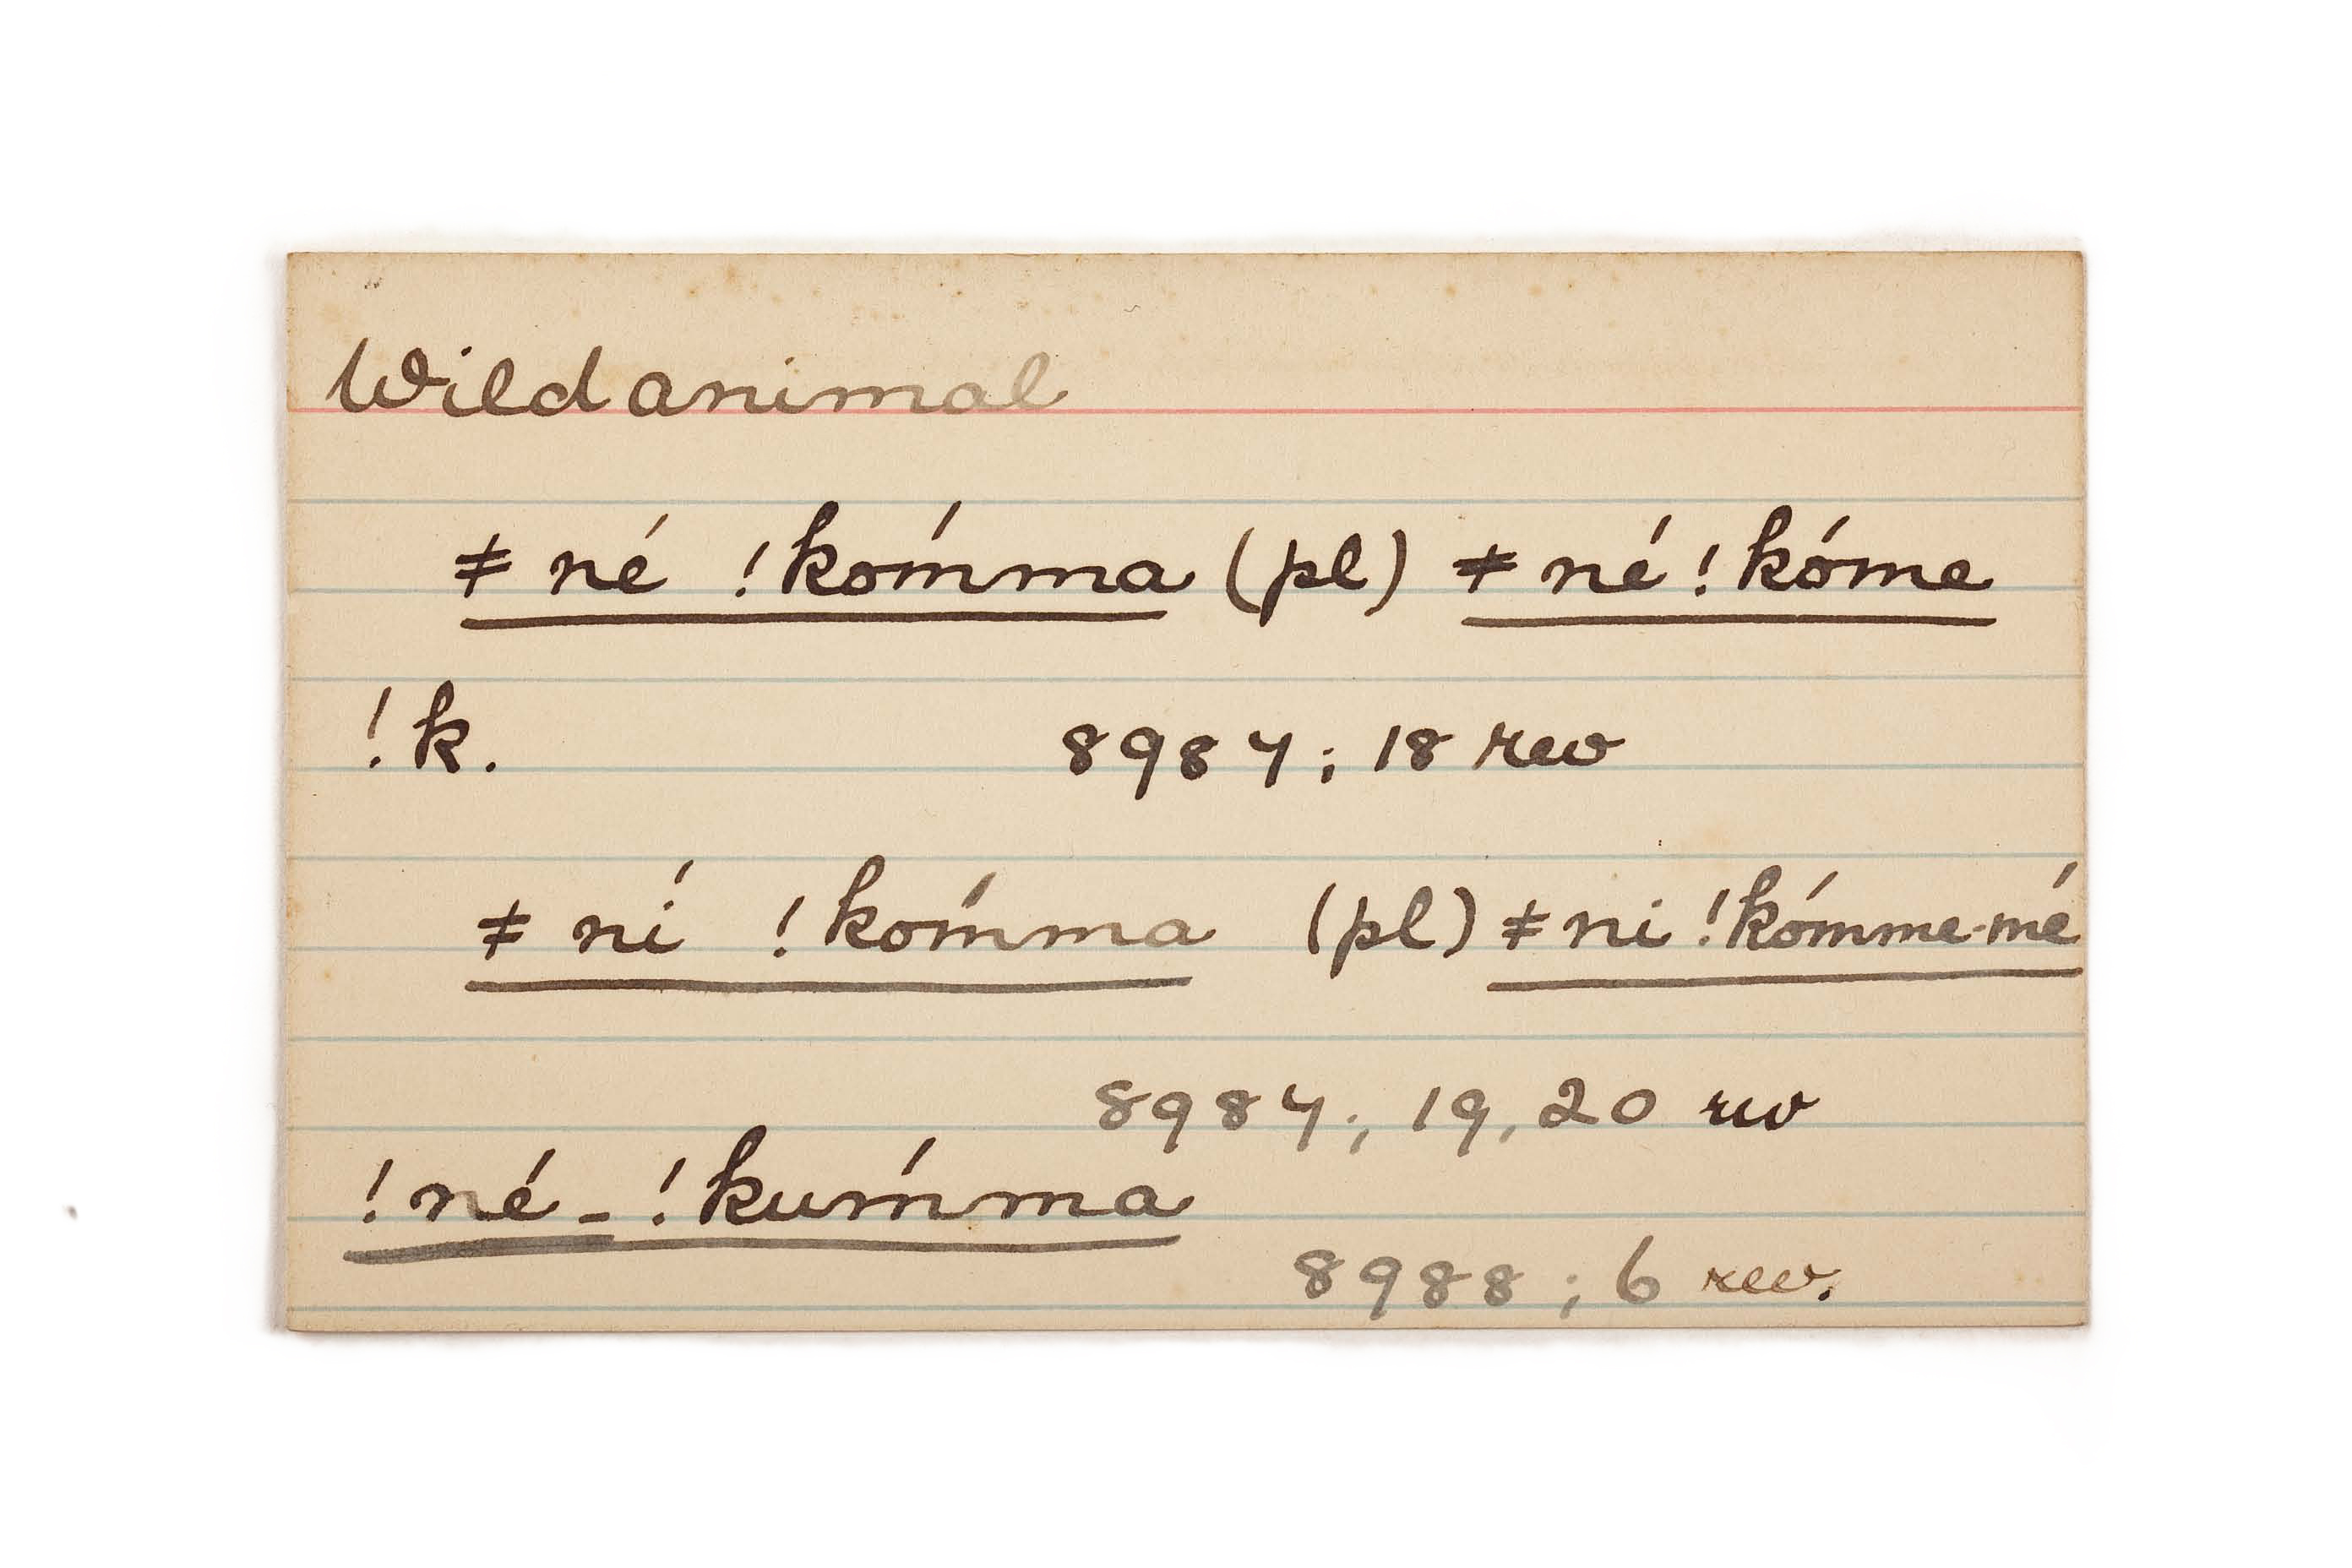 Wild animal
ǂ né !kómma (pl) ǂ né !kóme
!k. 8987; 18 rev
ǂ ní !kómma (pl) ǂ ni !kómme-mé
8987; 19, 20 rev
!né-!kumḿa
8988; 6 rev.